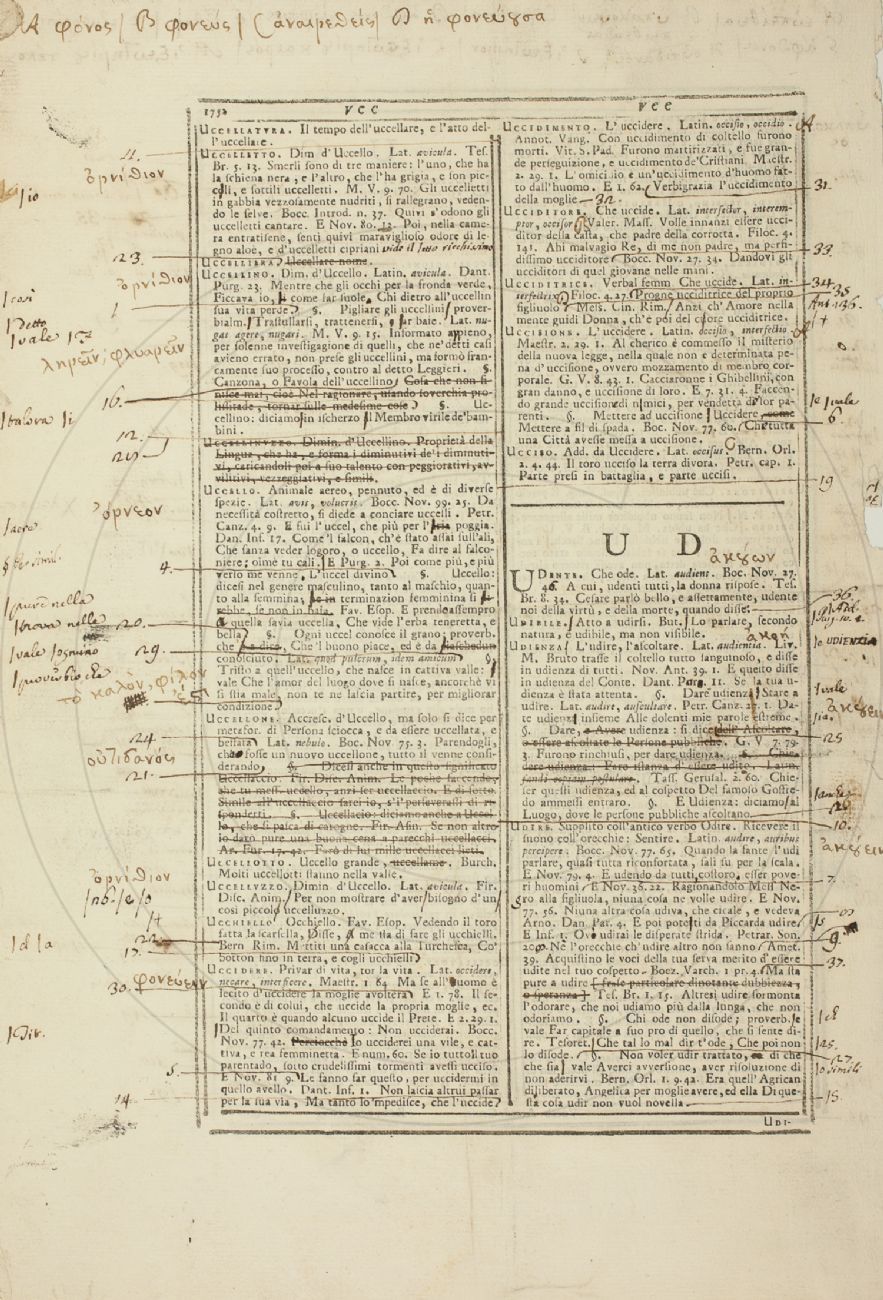 A φόνος | B φονεύς | C ἀναιρεθείς | D ἡ φονεύουσα
1752 VCC
UCCELLATURA. Il tempo dell'uccellare, e l'atto del-
l'uccellare.
UCCELLETTO. Dim d'Uccello. Lat. avicula. Tes.
Br. 5. 13. Smerli sono di tre maniere: l'uno, che ha
la schiena nera, e l'altro, che l'ha grigia, e son pic-
coli, e sottili uccelletti. M. V. 9. 70. Gli uccelletti
in gabbia vezzosamente nudriti, si rallegrano, veden-
do le selve. Bocc. Introd. n. 37. Quivi s'odono gli
uccelletti cantare. E Nov. 80. 12. Poi, nella came-
ra entratisene, sentì quivi maraviglioso odore di le-
gno aloè, e d'uccelletti cipriani vide il letto ricchissimo
UCCELLIERA. Uccellare nome.
UCCELLINO. Dim. d'Uccello. Latin. avicula. Dant.
Purg. 23. Mentre che gli occhi per la fronda verde,
Ficcava io, come far suole, Chi dietro all'uccellin
sua vita perde. §. Pigliare gli uccellini prover-
bialm. Trastullarsi, trattenersi, far baie. Lat. nu-
gas agere, nugari. M. V. 9. 15. Informato appieno,
per solenne investigagione di quelli, che ne'detti casi
avieno errato, non prese gli uccellini, ma formò fran-
camente suo processo, contro al detto Leggieri. §.
Canzona, o Favola dell'uccellino Cosa che non fi-
nisce mai, cioè Nel ragionare, usando soverchia pro-
lissitade, tornar sulle medesime cose §. Uc-
cellino: diciamo in ischerzo il Membro virile de'bam-
bini.
UCCELLINUZZO. Dimin. d'Uccellino. Proprietà della
Lingua, che ha, e forma i diminutivi de'i diminuti-
vi, caricandoli poi a suo talento con peggiorativi, av-
vilitivi, vezzeggiativi, e simili.
UCCELLO. Animale aereo, pennuto, ed è di diverse
spezie. Lat. avis, volucris. Bocc. Nov. 99. 25. Da
necessità costretto, si diede a conciare uccelli. Petr.
Canz. 4. 9. E fui l'uccel, che più per l'aria poggia.
Dan. Inf. 17. Come'l falcon, ch'è stato assai sull'ali,
Che sanza veder logoro, o uccello, Fa dire al falco-
niere; oimè tu cali. E Purg. 2. Poi come più, e più
verso me venne, L'uccel divino §. Uccello:
dicesi nel genere masculino, tanto al maschio, quan-
to alla femmina, terminazion femminina si
rebbe, se non in baia. Fav. Esop. E prende assempro
a quella savia uccella, Che vide l'erba teneretta, e
bella §. Ogni uccel conosce il grano; proverb.
che Che'l buono piace, ed è da
conosciuto. Lat. quod pulcrum, idem amicum §.
Tristo a quell'uccello, che nasce in cattiva valle;
vale Che l'amor del luogo dove si nasce, ancorchè vi
si stia male, non te ne lascia partire, per migliorar
condizione.
UCCELLONE. Accresc. d'Uccello, ma solo si dice per
metafor. di Persona sciocca, e da essere uccellata, e
beffata. Lat. nebulo. Bocc. Nov. 75. 3. Parendogli,
che fosse un nuovo uccellone, tutto il venne consi-
derando, §. Dicesi anche in questo significato
Uccellaccio. Fir. Disc. Anim. Le poche faccende,
che tu messer uccello, anzi ser uccellaccio. E di sotto.
Simile all'uccellaccio sarei io, s'i' perseverassi di ri-
sponderti. §. Uccellaccio: diciamo anche a Uccel-
lo, che si pasca di carogne. Fir. Asin. Se non altro
io darò pure una buona cena a parecchi uccellacci.
Ar. Fur. 17. 42. Farò di lui mille uccellacci lieta.
UCCELLOTTO. Uccello grande, uccellame. Burch.
Molti uccellotti stanno nella valle.
UCCELLUZZO. Dimin d'Uccello. Lat. avicula. Fir.
Disc. Anim. Per non mostrare d'aver bisogno d'un
così piccolo uccelluzzo.
UCCHIELLO. Occhiello. Fav. Esop. Vedendo il toro
fatta la scarsella, Disse, A me sta di fare gli ucchielli.
Bern Rim. Mettiti una casacca alla Turchesca, Co'
bottoni fino in terra, e cogli ucchielli
UCCIDERE. Privar di vita, tor la vita. Lat. occidere,
necare, interficere. Maestr. 1 64 Ma se all'huomo è
lecito d'uccidere la moglie avoltera. E 1. 78. Il se-
condo è di colui, che uccide la propria moglie, ec.
Il quarto è quando alcuno uccide il Prete. E 2. 29. 1.
Del quinto comandamento: Non ucciderai. Bocc.
Nov. 77. 42. Perciocchè Io ucciderei una vile, e cat-
tiva, e rea femminetta. E num. 60. Se io tutto il tuo
parentado, sotto crudelissimi tormenti avessi ucciso.
E Nov. 81 9. Le fanno far questo, per uccidermi in
quello avello. Dant. Inf. 1. Non lascia altrui passar
per la sua via, Ma tanto lo'mpedisce, che l'uccide
VCC
UCCIDIMENTO. L'uccidere. Latin. occisio, occidio.
Annot. Vang. Con uccidimento di coltello furono
morti. Vit. S. Pad. Furono martirizzati, e fue gran-
de perseguizione, e uccidimento de'Cristiani. Maestr.
2. 29. 1. L'omicidio è un'uccidimento d'huomo fat-
to dall'huomo. E 1. 62. Verbigrazia l'uccidimento
della moglie 32.
UCCIDITORE. Che uccide. Lat. interfector, interem-
ptor, occisor Valer. Mass. Volle innanzi essere ucci-
ditor della casta, che padre della corrotta. Filoc. 4.
141. Ahi malvagio Re, di me non padre, ma perfi-
dissimo ucciditore Bocc. Nov. 27. 34. Dandovi gli
ucciditori di quel giovane nelle mani.
UCCIDITRICE. Verbal femm. Che uccide. Lat. in-
terfectrix Filoc. 4. 27. Progne ucciditrice del proprio
figliuolo Mess. Cin. Rim. Anzi ch'Amore nella
mente guidi Donna, ch'è poi del cuore ucciditrice.
UCCISIONE. L'uccidere. Latin. occisio, interfectio
Maestr. 2. 29. 1. Al cherico è commesso il misterio
della nuova legge, nella quale non è determinata pe-
na d'uccisione, ovvero mozzamento di membro cor-
porale. G. V. 8. 43. 1. Cacciaronne i Ghibellini, con
gran danno, e uccisione di loro. E 7. 31. 4. Faccen-
do grande uccisione di nimici, per vendetta di lor pa-
renti. §. Mettere ad uccisione Uccidere, come
Mettere a fil di spada. Bocc. Nov. 77. 60. Che tutta
una Città avesse messa a uccisione.
UCCISO. Add. da Uccidere. Lat. occisus Bern. Orl.
2. 4. 44. Il toro ucciso la terra divora. Petr. cap. 1.
Parte presi in battaglia, e parte uccisi.
U D
ἀκούων
UDENTE. Che ode. Lat. audiens. Bocc. Nov. 27.
46. A cui, udenti tutti, la donna rispose. Tes.
Br. 8. 34. Cesare parlò bello, e assettamente, udente
noi della virtù, e della morte, quando disse:
UDIBILE. Atto a udirsi. But. Lo parlare, secondo
natura, è udibile, ma non visibile. ἀκοή
UDIENZA L'udire, l'ascoltare. Lat. audientia. Liv.
M. Bruto trasse il coltello tutto sanguinoso, e disse
in udienza di tutti. Nov. Ant. 39. 1. E questo disse
in udienza del Conte. Dant. Par. 11. Se la tua u-
dienza è stata attenta. §. Dare udienza Stare a
udire. Lat. audire, auscultare. Petr. Canz. 27. 1. Da-
te udienza insieme Alle dolenti mie parole estreme.
§. Dare, o Avere udienza: si dice dell'Ascoltare,
o essere ascoltato le Persone pubbliche. G. V 7. 79.
3. Furono rinchiusi, per dare udienza. §. Chie-
dere udienza: Fare istanza d'essere udito. Latin.
fandi copiam postulare. Tass. Gerusal. 2. 60. Chie-
ser questi udienza, ed al cospetto Del famoso Goffre-
do ammessi entraro. §. E Udienza: diciamo al
Luogo, dove le persone pubbliche ascoltano
UDIRE. Supplito coll'antico verbo Odire. Ricevere il
suono coll'orecchie; Sentire. Latin. audire, auribus
percipere. Bocc. Nov. 77. 65. Quando la fante l'udì
parlare, quasi tutta riconfortata, salì su per la scala.
E Nov. 79. 4. E udendo da tutti, costoro, esser pove-
ri huomini E Nov. 36. 22. Ragionandolo Mess Ne-
gro alla figliuola, niuna cosa ne volle udire. E Nov.
77. 56. Niuna altra cosa udiva, che cicale, e vedeva
Arno. Dan. Par. 4. E poi potesti da Piccarda udire
E Inf. 1. Ove udirai le disperate strida. Petrar. Son.
Nè l'orecchie ch'udire altro non sanno Amet.
39. Acquistino le voci della tua serva merito d'essere
udite nel tuo cospetto. Boez. Varch. 1 pr. 4. Ma sta
pure a udire [frase particolare dinotante dubbiezza,
o speranza] Tes. Br. 1. 15. Altresì udire sormonta
l'odorare, che noi udiamo più dalla lunga, che non
odoriamo. §. Chi ode non disode; proverb.
vale Far capitale a suo pro di quello, che si sente di-
re. Tesoret. Che tal lo mal dir t'ode, Che poi non
lo disode. §. Non voler udir trattato, di che
che sia vale Averci avversione, aver risoluzione di
non aderirvi. Bern. Orl. 1. 9. 42. Era quell'Agrican
diliberato, Angelica per moglie avere, ed ella Di que-
sta cosa udir non vuol novella
UDI-
11.
ὀρνίθιον
23.
ὀρνίθιον
così
detto
vale
ληρεῖν, φλυαρεῖν
16.
talora si
12.
ὄρνεον
4.
20.
29.
τὸ καλὸν, φίλον
24.
οὐτιδανός
21.
ὀρνίθιον
22.
17.
φονεύειν
30.
5.
14.
31.
33.
34.
35
6.
19
36.
le UDIENZIA
vale
25
10.
7.
9.
37.
125.
27.
o simili
15.